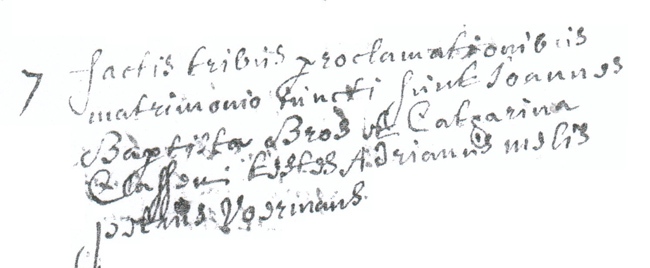 7 factis tribus proclamationibus
matrimonio iuncti sunt Joannes
Baptista Brod et Catharina
Classeni testes Adrianus melis
petrus Voermans